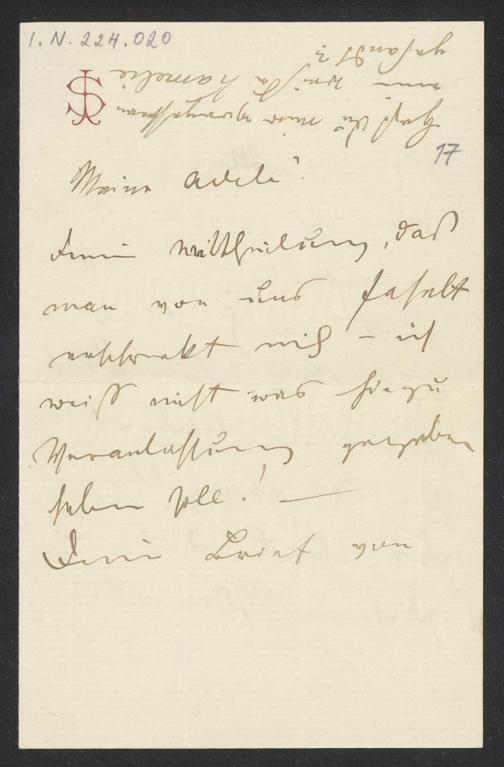 I. N. 224.020
17
Meine Adele!
Deine Mittheilung, daß
man von uns faselt
erschrekt mich – ich
weiß nicht was hiezu
Veranlassung gegeben
haben soll! —
Dein Brief von
Hast Du mir
eine weiße Kamelie
gesandt?